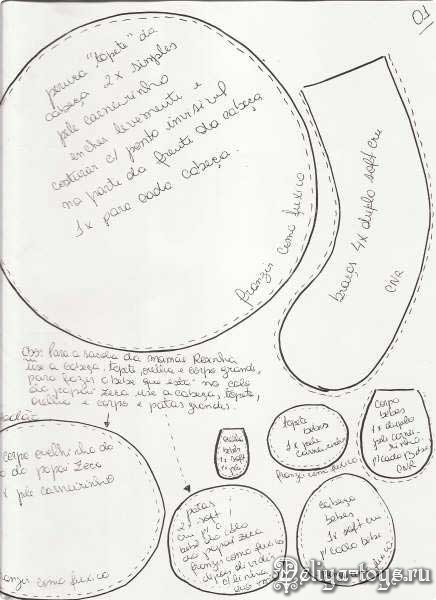 01
peruca "topete" da
cabeça 2x simples
pele carneirinho
encher levemente e
costurar c/ ponto invisível
na parte da frente da cabeça
1x para cada cabeça.
franzir como fuxico
braços 4x duplo soft cru
CNR
Obs: Para a sacola da mamãe Rosinha
use a cabeça, topete, orelha e corpo grande,
para fazer o bebê que está no colo
do papai Zeca use a cabeça, topete,
orelha e corpo e patas grandes.
corpo ovelhinha do
do papai Zeca
pele carneirinho
franzir como fuxico
patas
2x soft
cru p/ o
bebê do colo
do papai Zeca
franzir como fuxico
depois dividir
c/ linha
orelha
bebês
soft
topete
bebês
1x pele
carneirinho
franzir como fuxico
corpo
bebês
1x duplo
pele carnei
rinho
p/ cada bebê
CNR
cabeça
bebês
1x soft cru
p/ cada bebê
Peliya-toys.ru